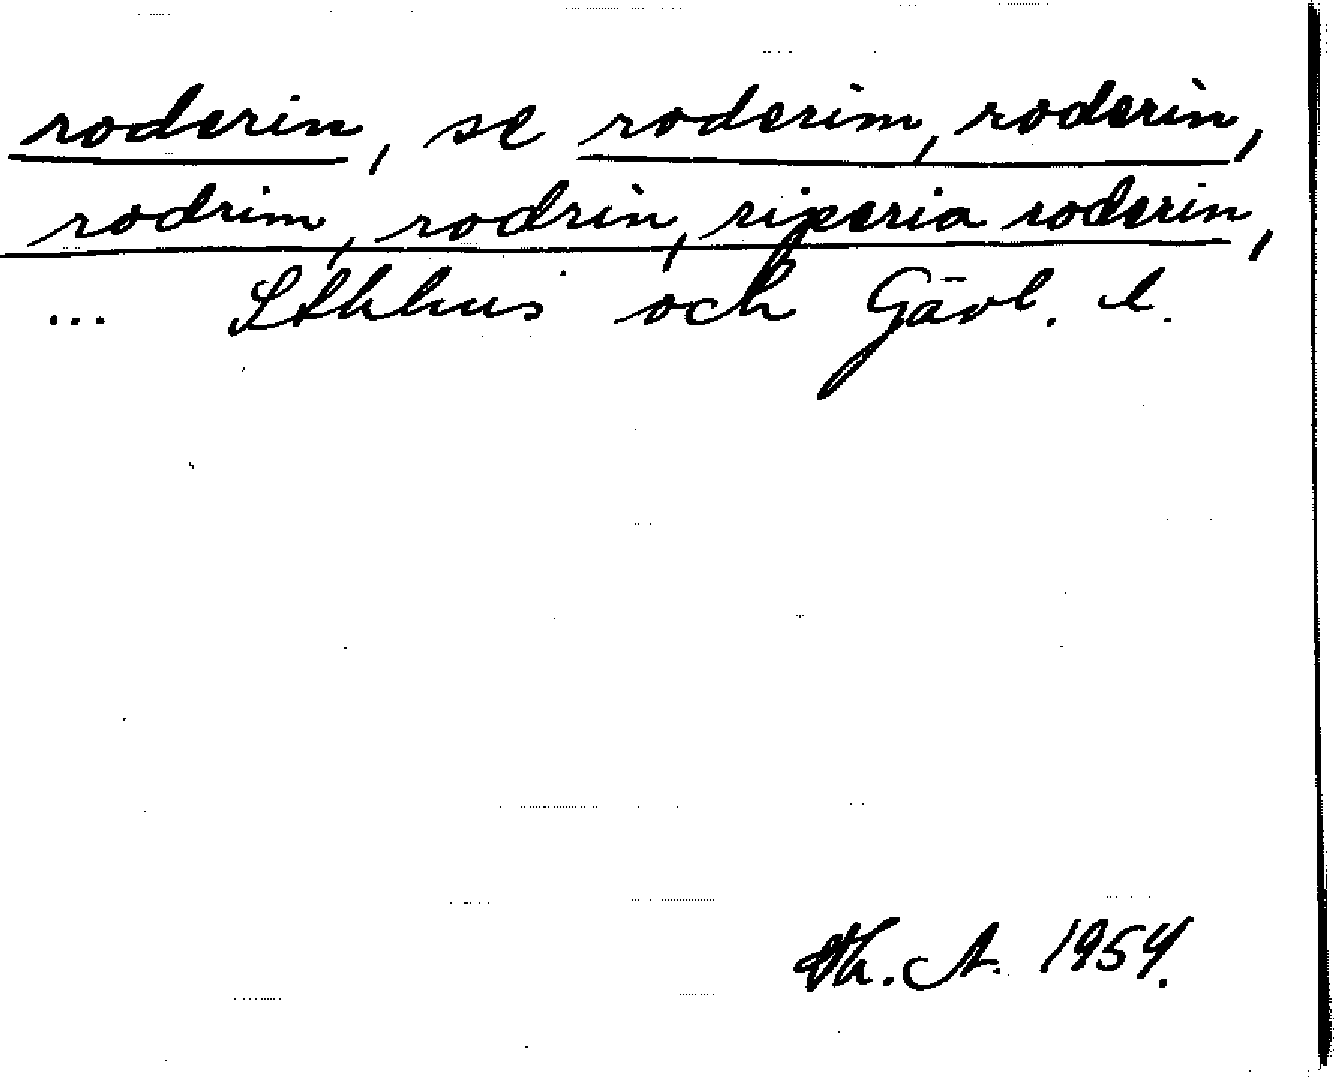 roderin, se roderim, roderin,
rodrim, rodrin, riperia roderin,
... Sthlms och Gävl. l.
Th. A. 1954.